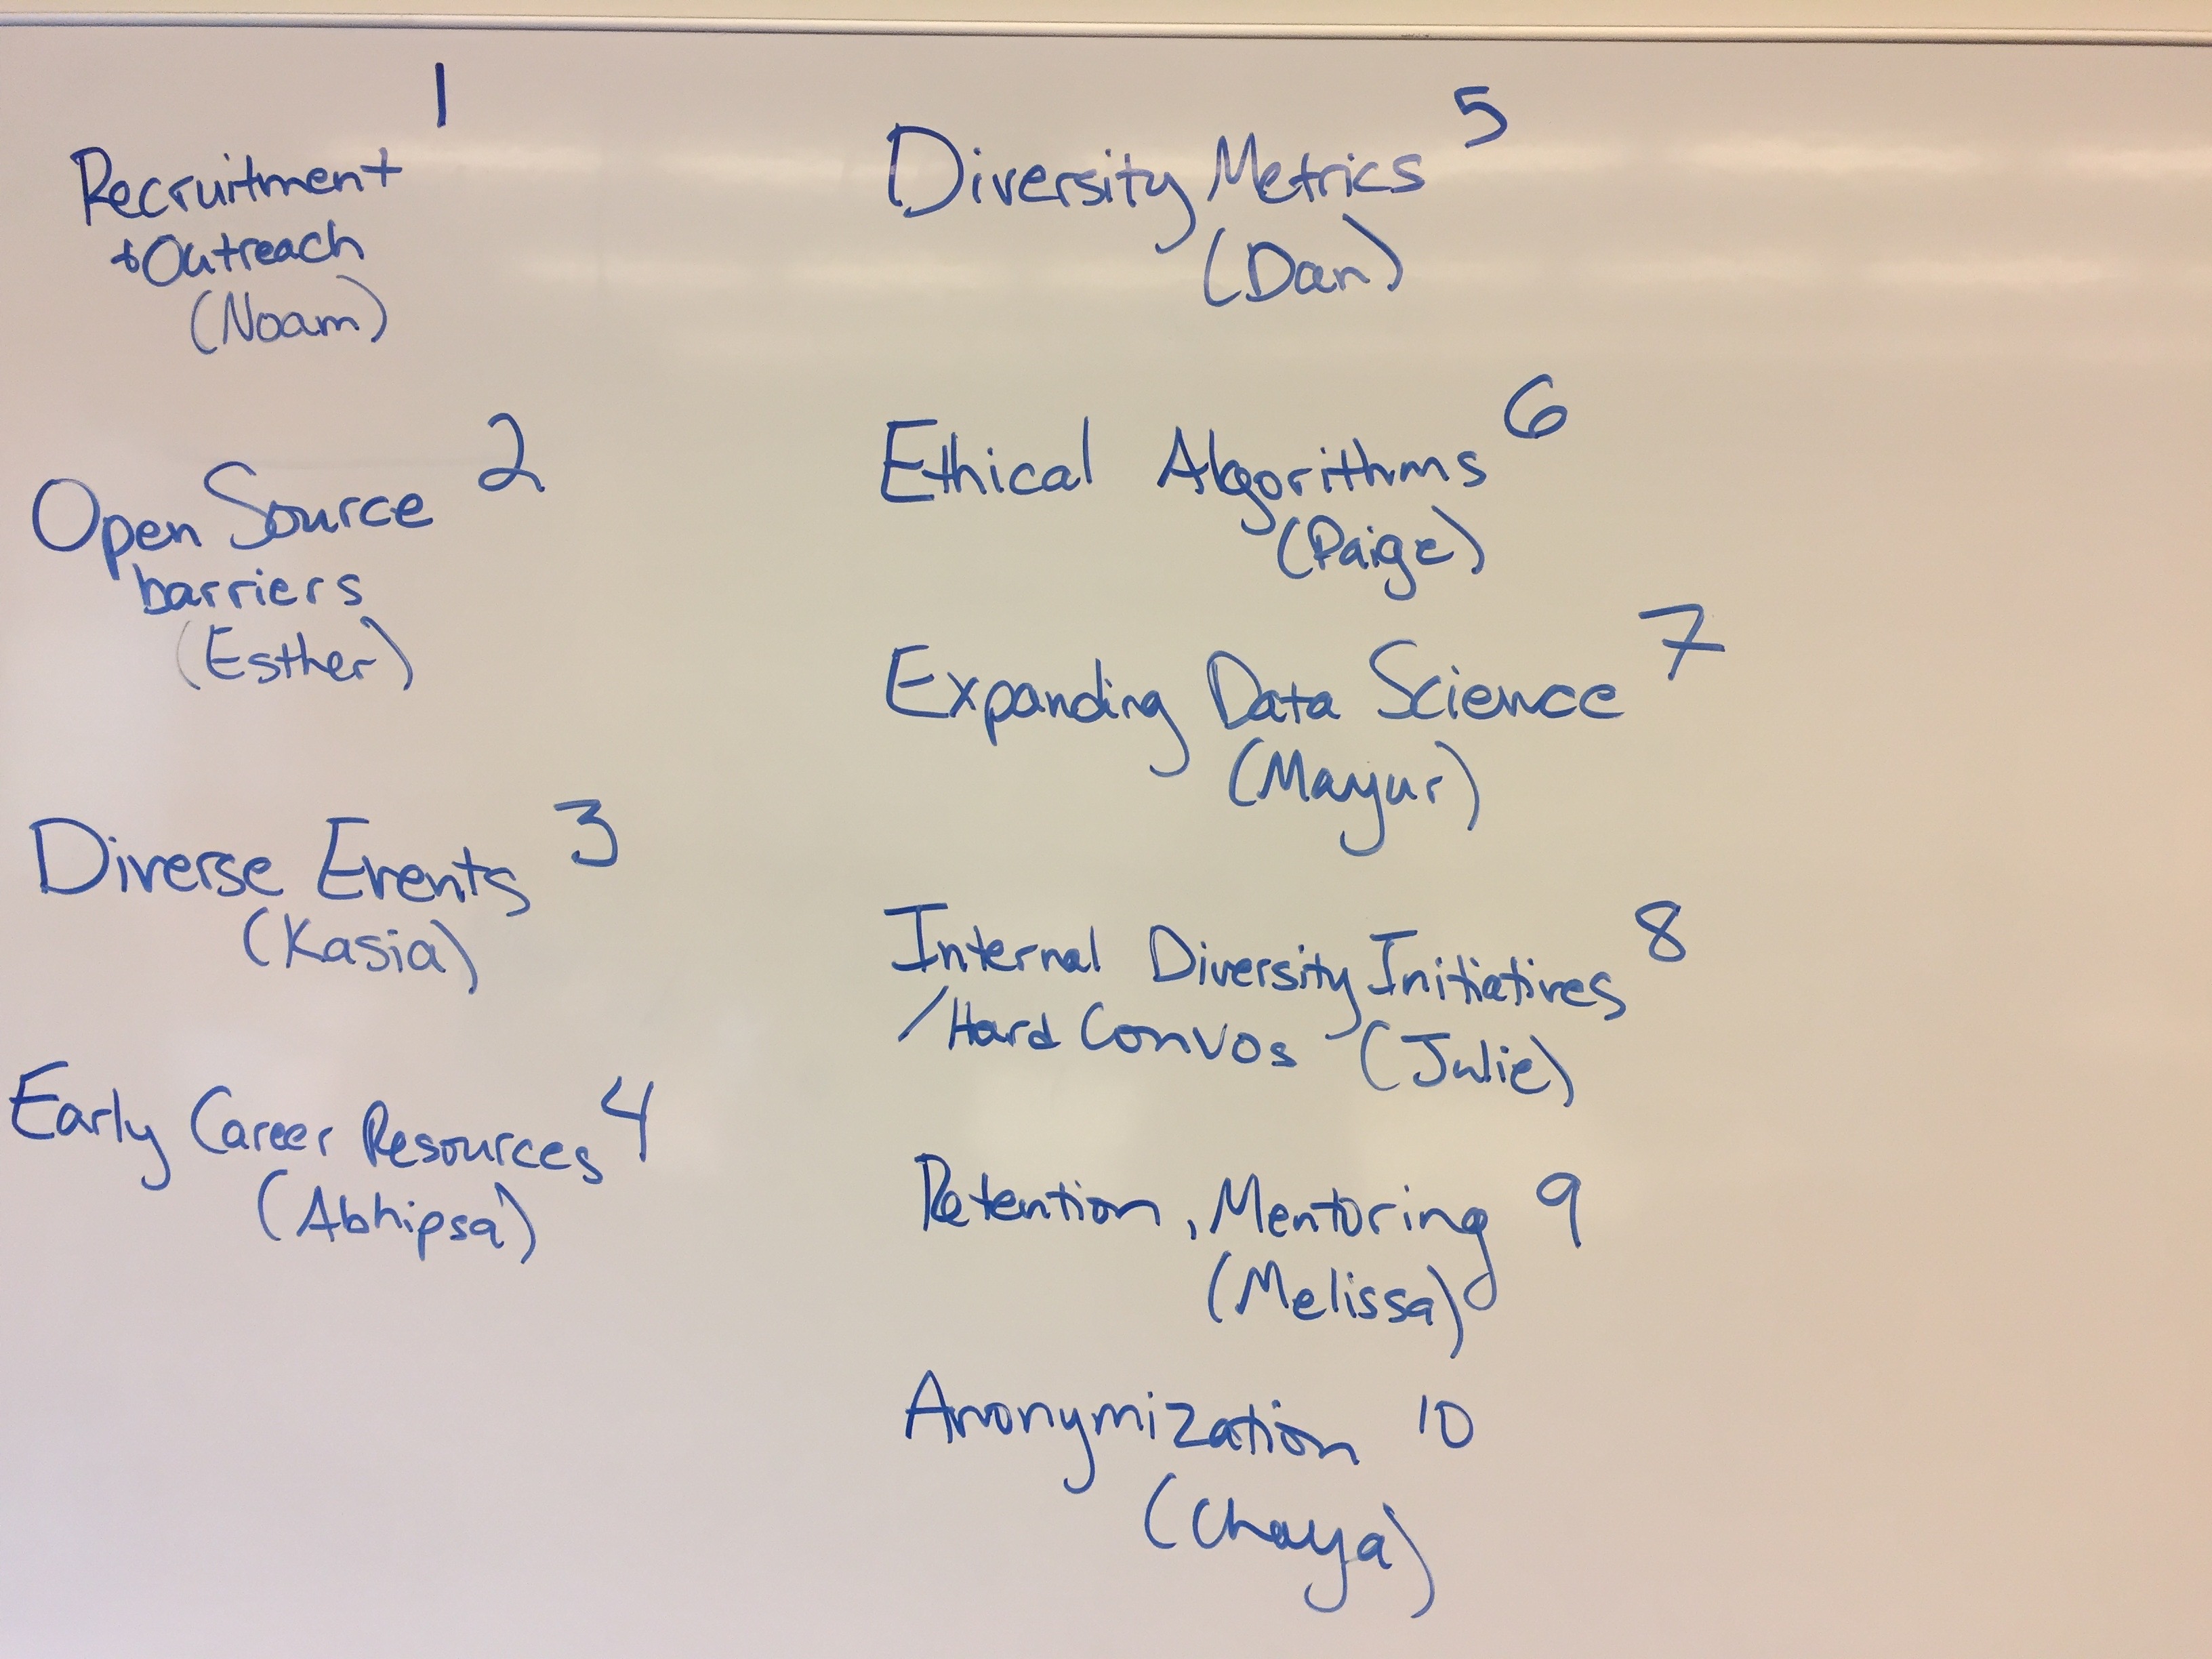 1
Recruitment
+Outreach
(Noam)
Open Source 2
barriers
(Esther)
Diverse Events 3
(Kasia)
Early Career Resources 4
(Abhipsa)
Diversity Metrics 5
(Dan)
Ethical Algorithms 6
(Paige)
Expanding Data Science 7
(Mayur)
Internal Diversity Initiatives 8
/Hard Convos (Julie)
Retention, Mentoring 9
(Melissa)
Anonymization 10
(Chaya)